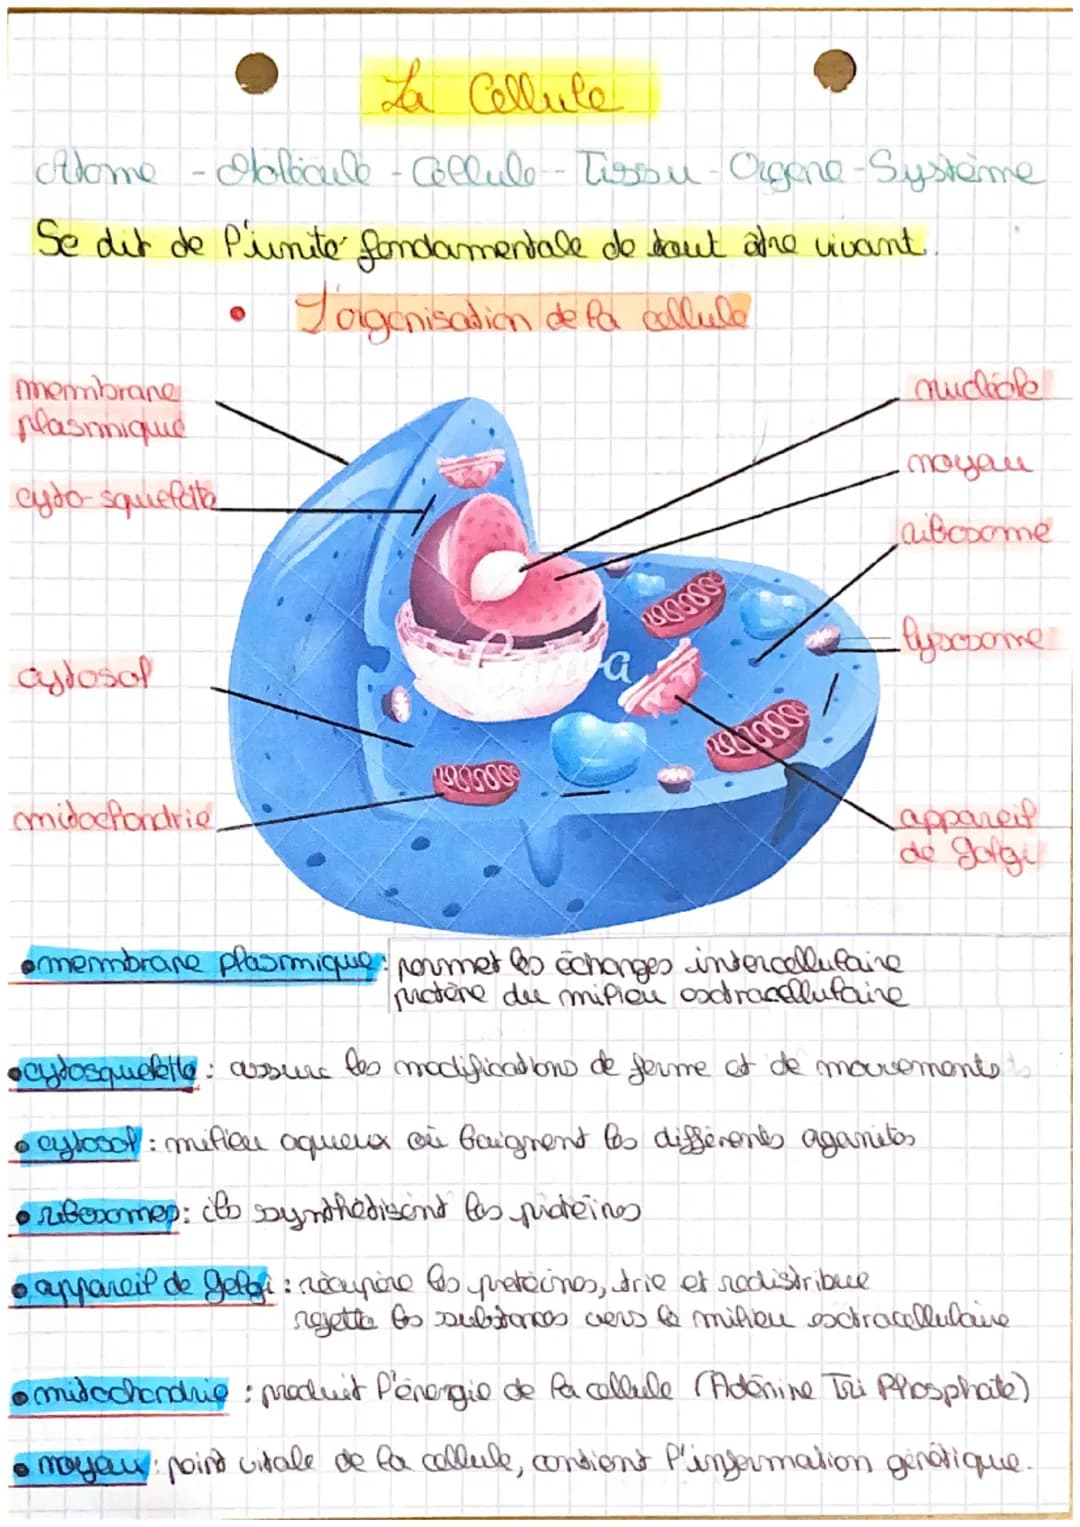 La Cellule
Atome - Molécule - Cellule - Tissu - Organe - Système
Se dit de l'unité fondamentale de tout être vivant.
• L'organisation de la cellule
membrane
plasmique
cyto-squelette
cytosol
mitochondrie
nucléole
noyau
ribosome
lysosome
appareil
de golgi
Canva
• membrane plasmique : permet les échanges intercellulaire
protène du milieu extracellulaire
• cytosquelette : assure les modifications de forme et de mouvements
• cytosol : milieu aqueux où baignent les différents aganites
• ribosomes : ils synthétisent les protéines
• appareil de golgi : récupère les protéines, trie et redistribue
rejette les substances vers le milieu extracellulaire
• mitochondrie : produit l'énergie de la cellule (Adénine Tri Phosphate)
• noyau : point vitale de la cellule, contient l'information génétique.